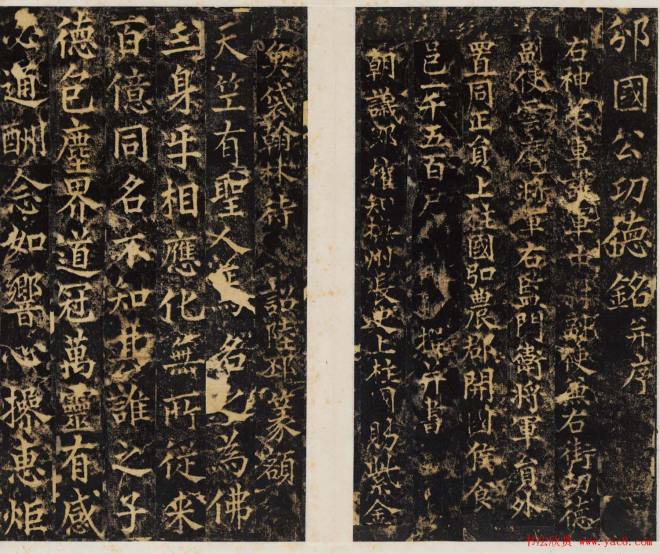 邠國公功德銘并序
右神策軍護軍中尉副使兼右街功德
副使雲麾將軍右監門衛將軍員外
置同正員上柱國弘農郡開國侯食
邑一千五百户 撰并書
朝議郎權知 州長史上柱國賜紫金
魚袋翰林待詔陸邳篆額
天竺有聖人 名之為佛
身 相應化無所従来
百億同名不知 誰之子
德包塵界道冠萬靈有感
必通酬念如響心 惠炬
书法欣赏 www.yac8.com